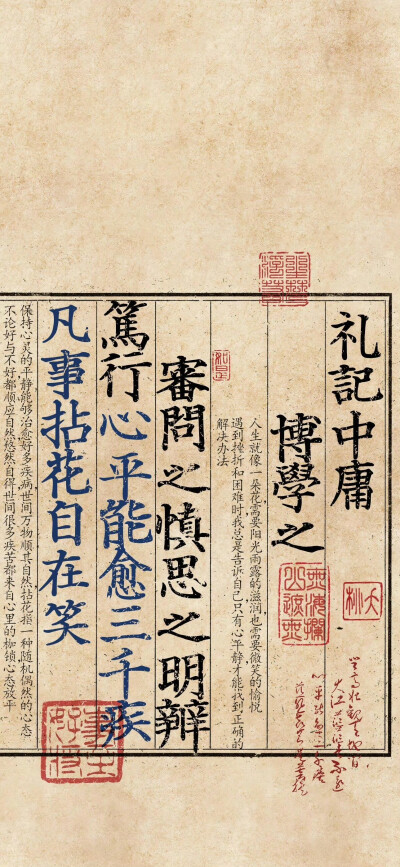 礼記中庸
博學之
人生就像一朵花需要阳光雨露的滋润也需要微笑的愉悦
遇到挫折和困难时我总是告诉自己只有心平静才能找到正确的
解决办法
審問之慎思之明辩
篤行心平能愈三千疾
凡事拈花自在笑
保持心灵的平静能够治愈好多疾病世间万物顺其自然拈花指一种随机偶然的心态
不论好与不好都顺应自然悠然自得世间很多疾苦都来自心里的枷锁心态放平